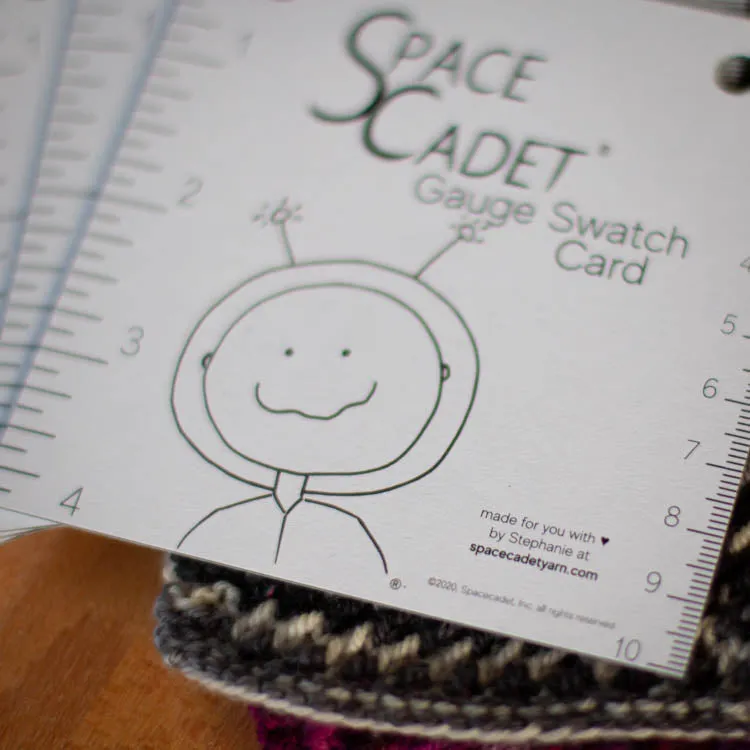 SPACE
CADET®
Gauge Swatch
Card
2
3
4
4
5
6
7
8
9
10
made for you with ♥
by Stephanie at
spacecadetyarn.com
®
©2020, Spacecadet, Inc, all rights reserved